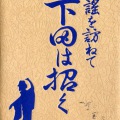 謡を訪ねて
下田は招く